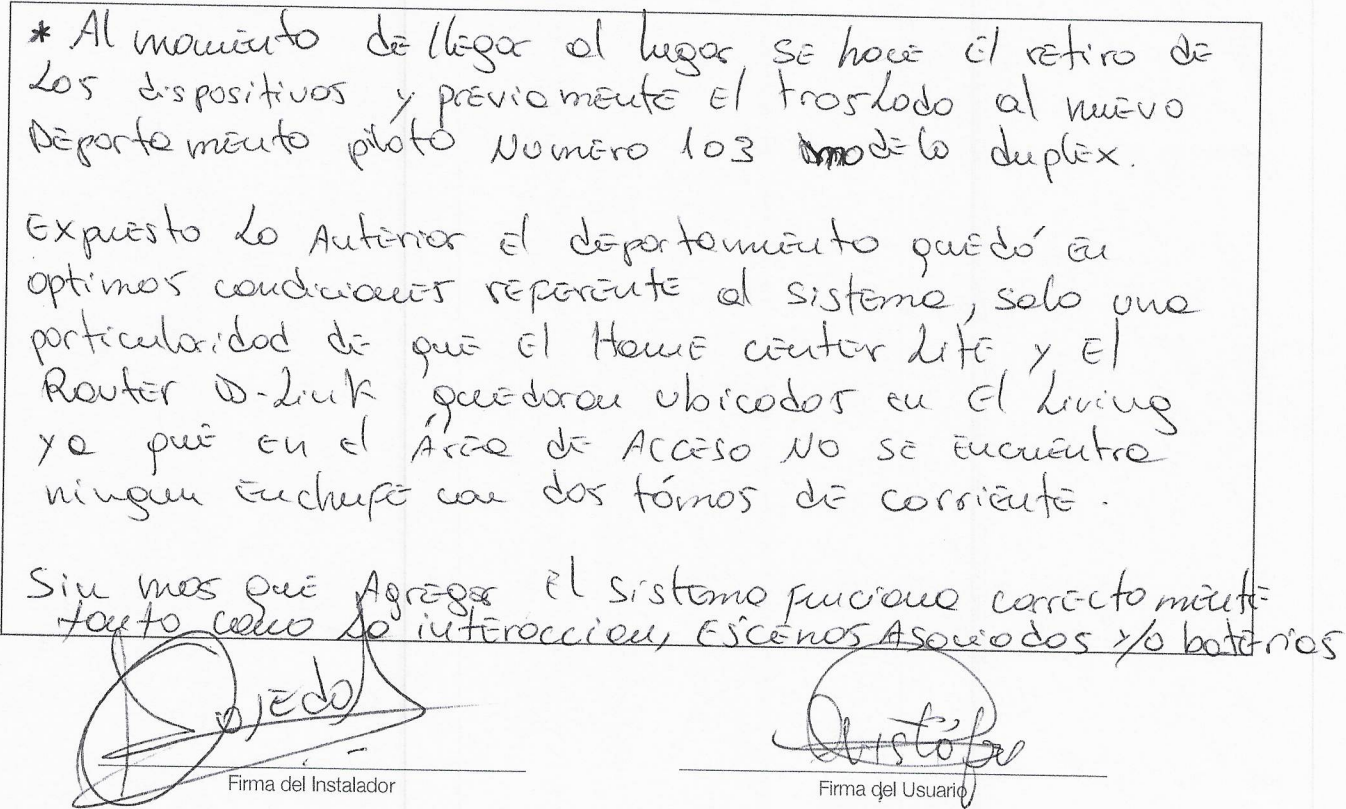 * Al momento de llegar al lugar se hace el retiro de
Los dispositivos y previamente El traslado al nuevo
Departamento piloto Numero 103 modelo duplex.
Expuesto Lo Anterior el departamiento quedó en
optimas condiciones referente al sistema, solo una
particularidad de que el Home center Lite y El
Router D-Link quedaron ubicados en el Living
ya que en el Área de Acceso No se encuentra
ningun enchufe con dos tómas de corriente.
Sin mas que Agregar el sistema funciona correctamente
tanto como La interaccion, Escenas Asociadas y/o baterias
Ojeda
Cristófer
Firma del Instalador
Firma del Usuario